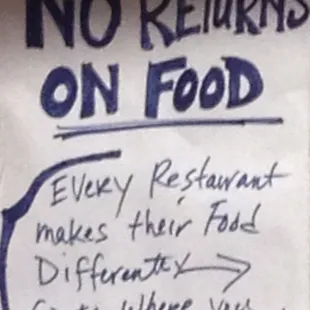 NO RETURNS
ON FOOD
EVERY Restaurant
makes their Food
Differently
Where you